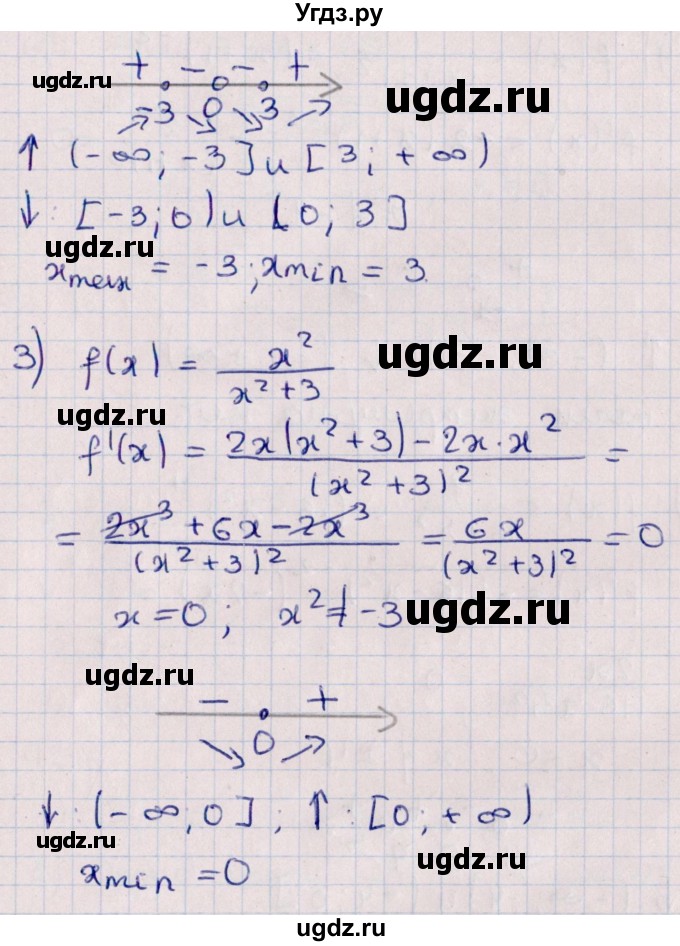 Угдз.ру
+ − − +
ugdz.ru
−3 0 3
ugdz.ru
↑ (−∞; −3] и [3; +∞)
↓: [−3; 0) и (0; 3]
ugdz.ru
xmax = −3; xmin = 3.
3) f(x) = x² / (x² + 3)
ugdz.ru
ugdz.ru
f'(x) = (2x(x² + 3) − 2x·x²) / (x² + 3)² =
= (2x³ + 6x − 2x³) / (x² + 3)² = 6x / (x² + 3)² = 0
x = 0; x² ≠ −3
ugdz.ru
ugdz.ru
− +
0
↓: (−∞; 0]; ↑: [0; +∞)
ugdz.ru
xmin = 0
ugdz.ru
ugdz.ru